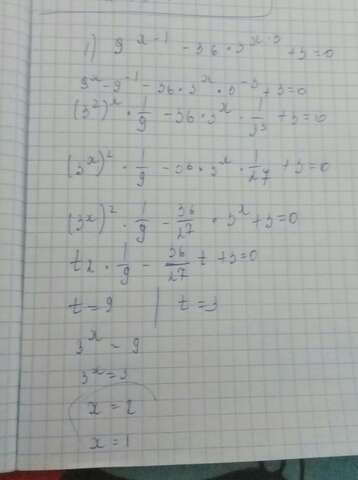 1) 9^(x-1) - 36 · 3^(x-3) + 3 = 0
9^x · 9^(-1) - 36 · 3^x · 3^(-3) + 3 = 0
(3^2)^x · 1/9 - 36 · 3^x · 1/3^3 + 3 = 0
(3^x)^2 · 1/9 - 36 · 3^x · 1/27 + 3 = 0
(3^x)^2 · 1/9 - 36/27 · 3^x + 3 = 0
t2 · 1/9 - 36/27 t + 3 = 0
t = 9 | t = 3
3^x = 9
3^x = 3
x = 2
x = 1